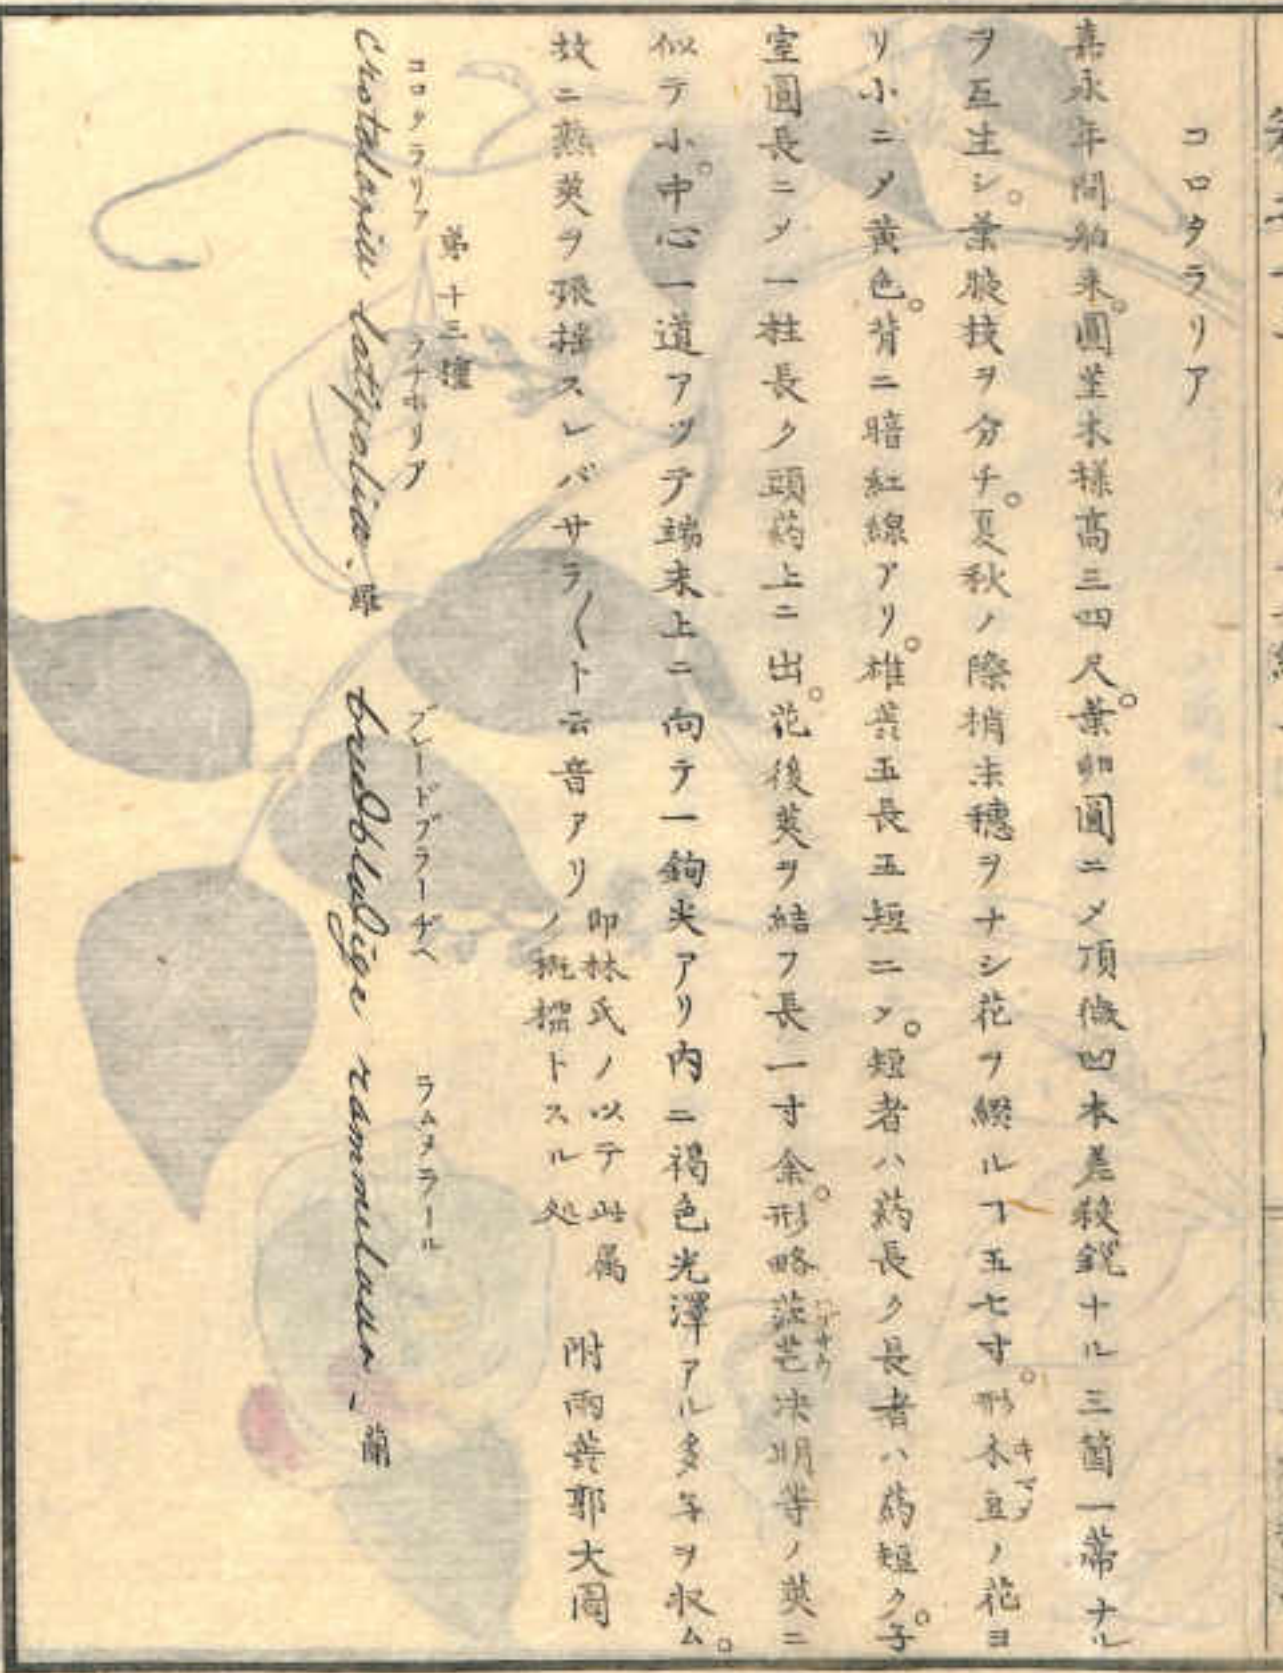 コロタラリア
嘉永年間舶来。圓茎木様高三四尺。葉畧圓ニメ頂微凹本差殺鋭ナル三箇一蔕ナル
ヲ互生シ。葉腋枝ヲ分チ。夏秋ノ際梢末穂ヲナシ花ヲ綴ルヿ五七寸。形木豆ノ花ヨ
キマメ
リ小ニメ黄色。背ニ暗紅線アリ。雄蕋五長五短ニメ。短者ハ葯長ク長者ハ葯短ク。子
室圓長ニメ一柱長ク頭葯上ニ出。花後莢ヲ結フ長一寸余。形略茳芒决明等ノ莢ニ
似テ小。中心一道アツテ端末上ニ向テ一鉤尖アリ内ニ褐色光澤アル多子ヲ収ム。
故ニ熟莢ヲ振揺スレバサラ〱ト云音アリ
即林氏ノ以テ此属
ノ概標トスル処
附雨蕋郭大圖
第十三種
コロタラリア ラチホリア
Crotalaria latifolia. 羅
ブレードブラーヂヘ ラムメラール
breedbladige rammelaar. 蘭